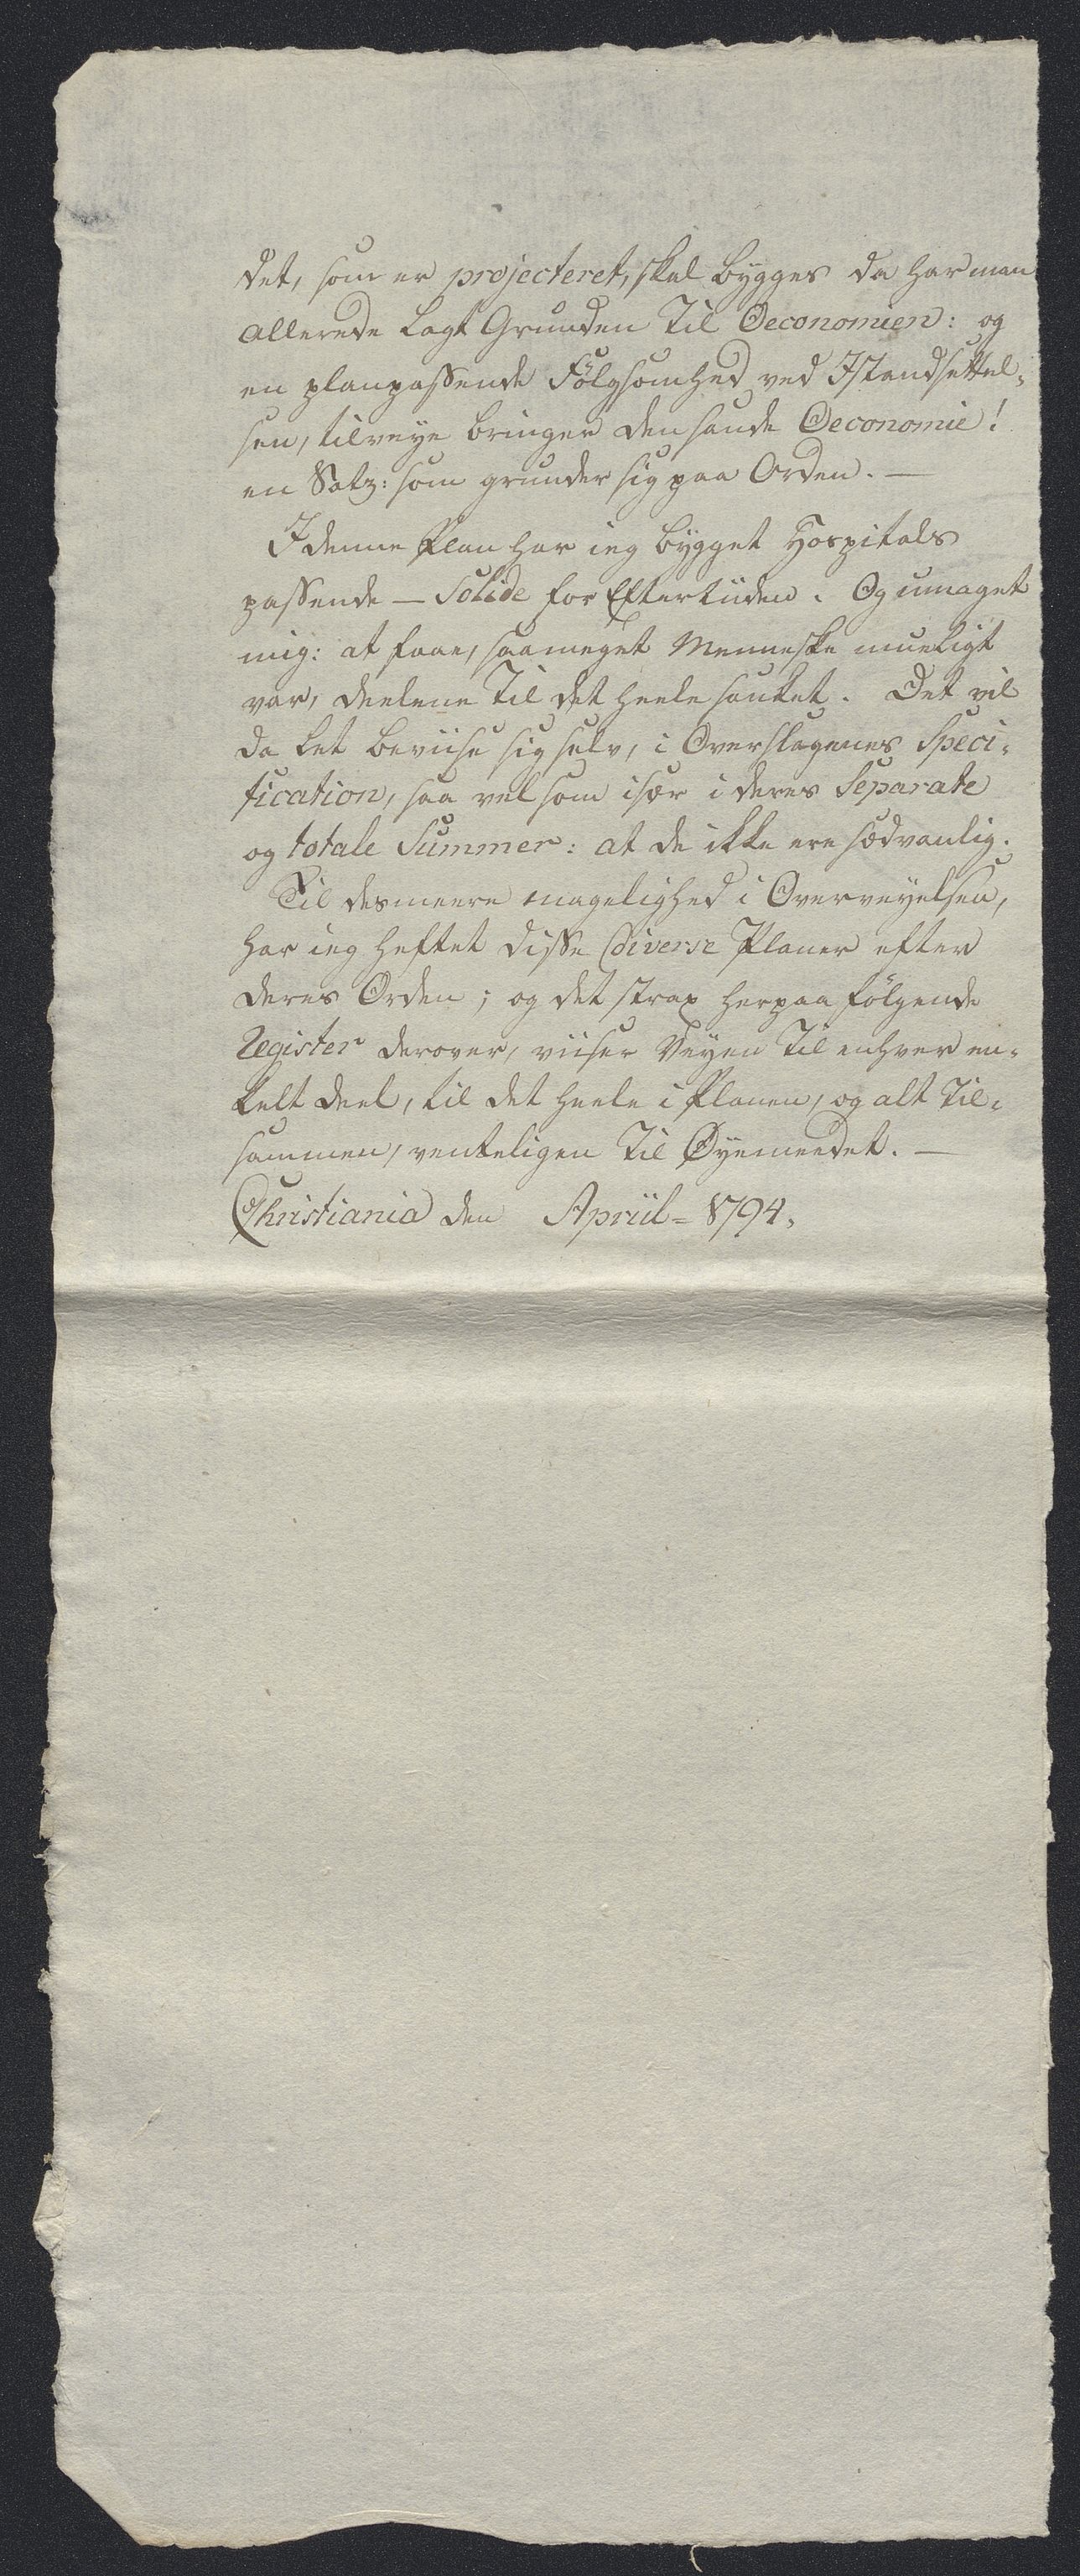 det, som er projecteret, skal bygges da har man
allerede lagt Grunden til Oeconomien: og
en planpassende Følgsomhed ved Istandsettel-
sen, tilveye bringer den sande Oeconomie!
en Satz: som grunder sig paa Orden. —
I denne Plan har ieg bygget Hospitals
passende — Solide for Eftertiiden. Og umaget
mig: at faae, saameget Menneske mueligt
var, deelene til det heele samlet. Det vil
da let beviise sig selv, i Overslagenes Speci-
fication, saa vel som især i deres Separate
og totale Summer: at de ikke ere sædvanlig.
Til desmeere magelighed i Overveyelsen,
har ieg heftet disse diverse Planer efter
deres Orden; og det strax herpaa følgende
Register derover, viiser Veyen til enhver en-
kelt deel, til det heele i Planen, og alt til-
sammen, venteligen til Øyemeedet. —
Christiania den Apriil = 1794.